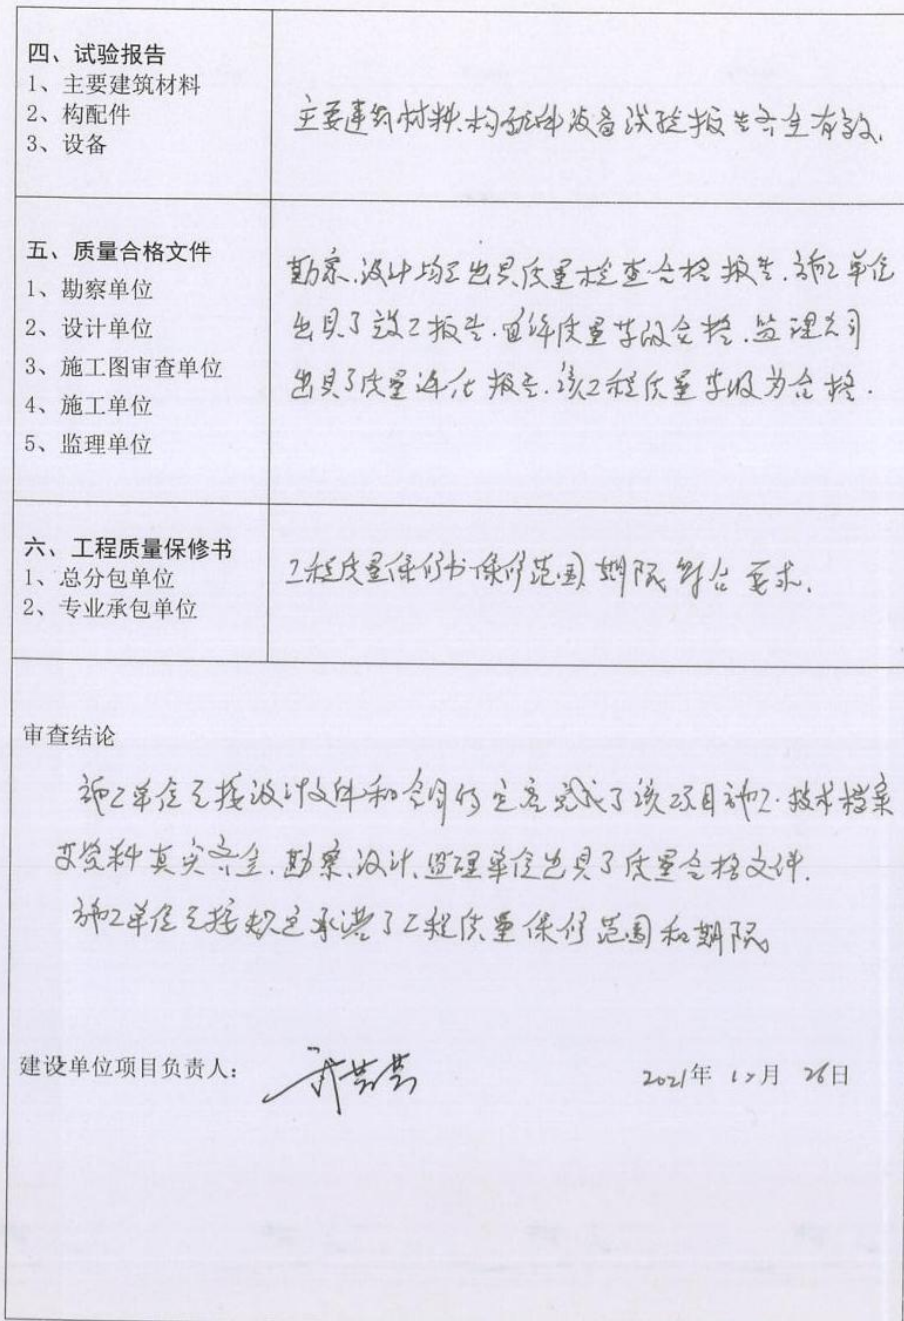 四、试验报告
1、主要建筑材料
2、构配件
3、设备
主要建筑材料、构配件设备试验报告齐全有效.
五、质量合格文件
1、勘察单位
2、设计单位
3、施工图审查单位
4、施工单位
5、监理单位
勘察.设计均已出具质量检查合格报告.施工单位
出具了竣工报告.自评质量等级合格.监理公司
出具了质量评估报告.该工程质量等级为合格.
六、工程质量保修书
1、总分包单位
2、专业承包单位
工程质量保修书保修范围、期限符合要求.
审查结论
施工单位已按设计文件和合同约定完成了该项目施工.技术档案
资料真实齐全.勘察、设计、监理单位出具了质量合格文件.
施工单位已按规定承诺了工程质量保修范围和期限
建设单位项目负责人：
2021年 12月 26日